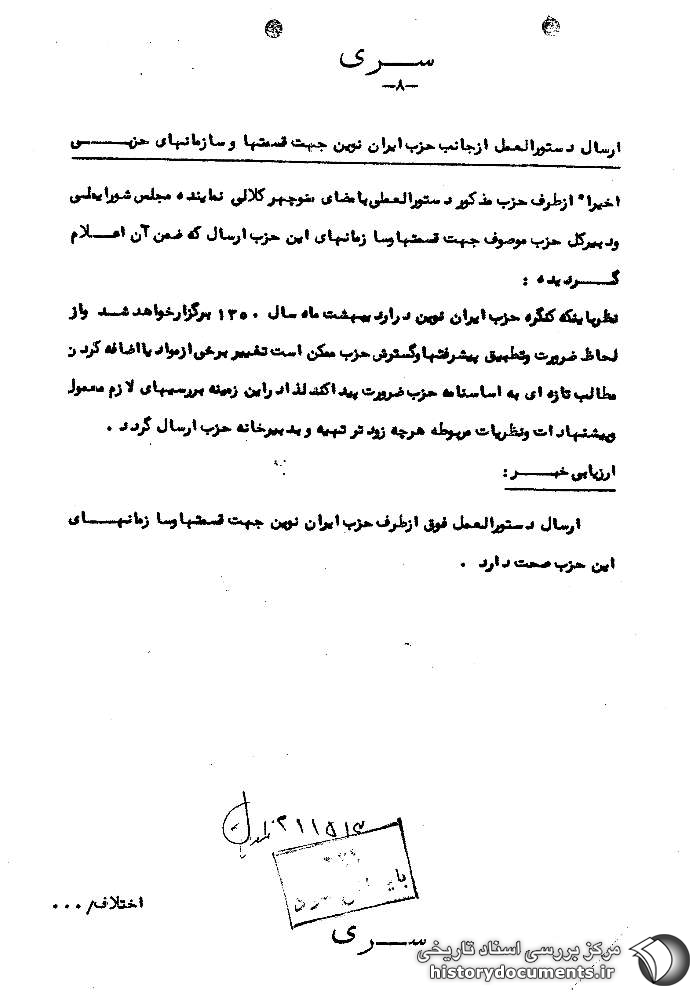 سـری
-۸-
ارسال دستورالعمل ازجانب حزب ایران نوین جهت قسمتها وسازمانهای حزبـــی
اخیرا" ازطرف حزب مذکور دستورالعملی بامضای منوچهر کلالی نماینده مجلس شورایملی
ودبیرکل حزب موصوف جهت قسمتهاوسا زمانهای این حزب ارسال که ضمن آن اعـلام
گـــردیده :
نظرباینکه کنگره حزب ایران نوین در اردیبهشت ماه سال ۱۳۵۰ برگزارخواهد شد واز
لحاظ ضرورت وتطبیق پیشرفتهاوگسترش حزب ممکن است تغییر برخی ازمواد یااضافه کردن
مطالب تازه ای به اساسنامه حزب ضرورت پیدا کند لذا دراین زمینه بررسیهای لازم معمول
وپیشنهادات ونظریات مربوطه هرچه زودتر تهیه و بدبیرخانه حزب ارسال گردد .
ارزیابی خبـــر :
ارسال دستورالعمل فوق ازطرف حزب ایران نوین جهت قسمتهاوسا زمانهـــای
این حزب صحت دارد .
۲۱۱۵۱۳
اختلاف/۰۰۰
ســری
مرکز بررسی اسناد تاریخی
historydocuments.ir